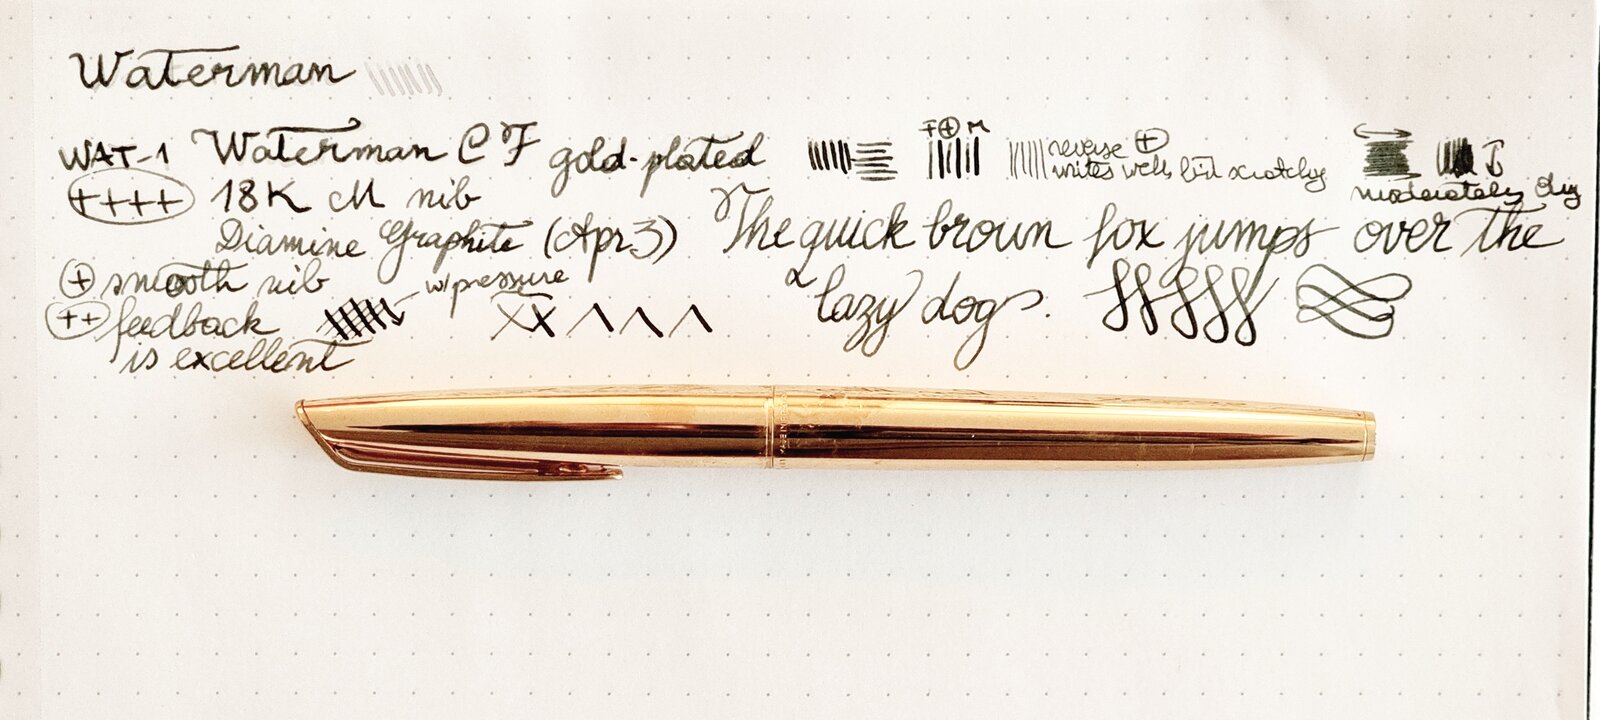 Waterman
WAT-1 Waterman CF gold-plated
F + M
reverse +
writes well but scratchy
moderately dry
++++ 18K M nib
Diamine Graphite (Apr 3)
The quick brown fox jumps over the
lazy dog.
+ smooth nib
w/pressure
++ feedback
is excellent